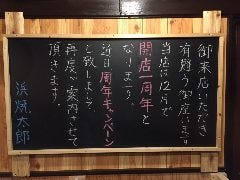 御来店いただき
有難う御座います
当店は12月で
開店一周年と
なります。
近日周年キャンペーン
と致しまして
再度ご案内させて
頂きます。
浜焼太郎